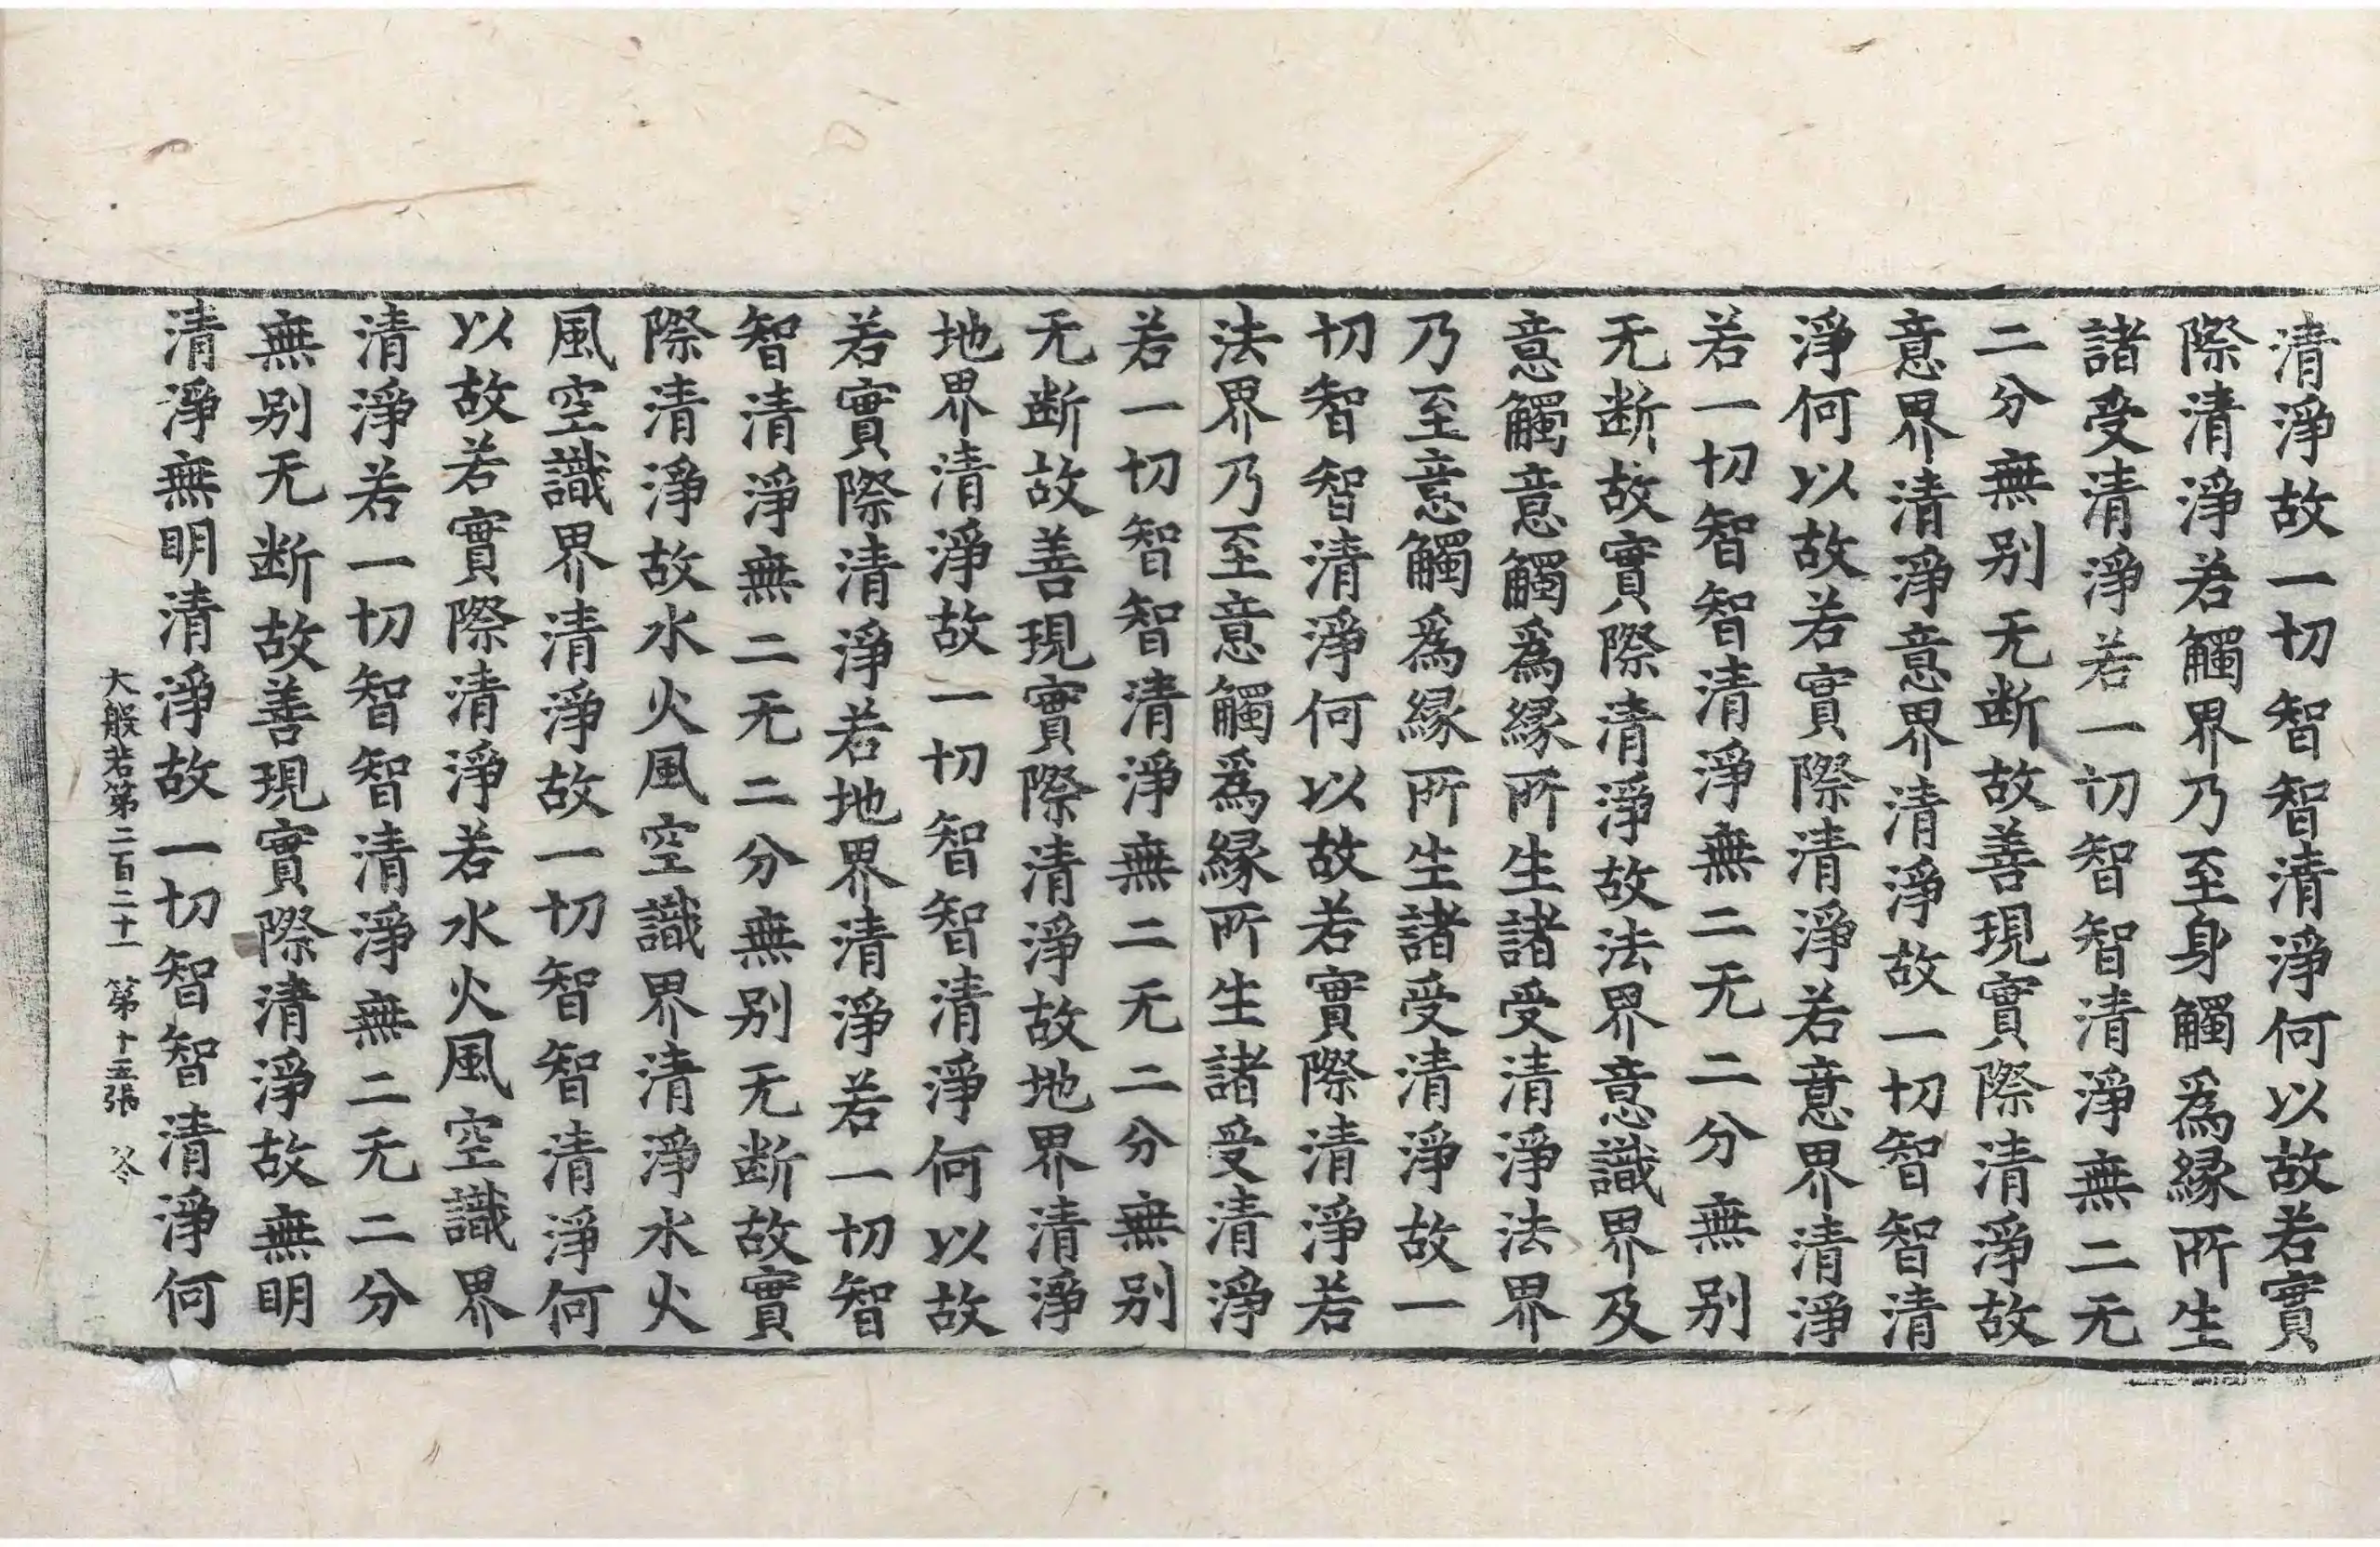 清淨故一切智智清淨何以故若實
際清淨若觸界乃至身觸爲縁所生
諸受清淨若一切智智清淨無二无
二分無别无断故善現實際清淨故
意界清淨意界清淨故一切智智清
淨何以故若實際清淨若意界清淨
若一切智智清淨無二无二分無别
无断故實際清淨故法界意識界及
意觸意觸爲縁所生諸受清淨法界
乃至意觸爲縁所生諸受清淨故一
切智智清淨何以故若實際清淨若
法界乃至意觸爲縁所生諸受清淨
若一切智智清淨無二无二分無别
无断故善現實際清淨故地界清淨
地界清淨故一切智智清淨何以故
若實際清淨若地界清淨若一切智
智清淨無二无二分無别无断故實
際清淨故水火風空識界清淨水火
風空識界清淨故一切智智清淨何
以故若實際清淨若水火風空識界
清淨若一切智智清淨無二无二分
無别无断故善現實際清淨故無明
清淨無明清淨故一切智智清淨何
大般若第二百二十一 第十五張